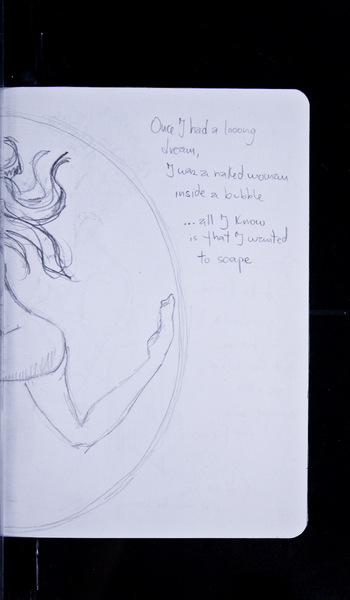 Once I had a looong
dream,
I was a naked woman
inside a bubble
...all I know
is that I wanted
to scape